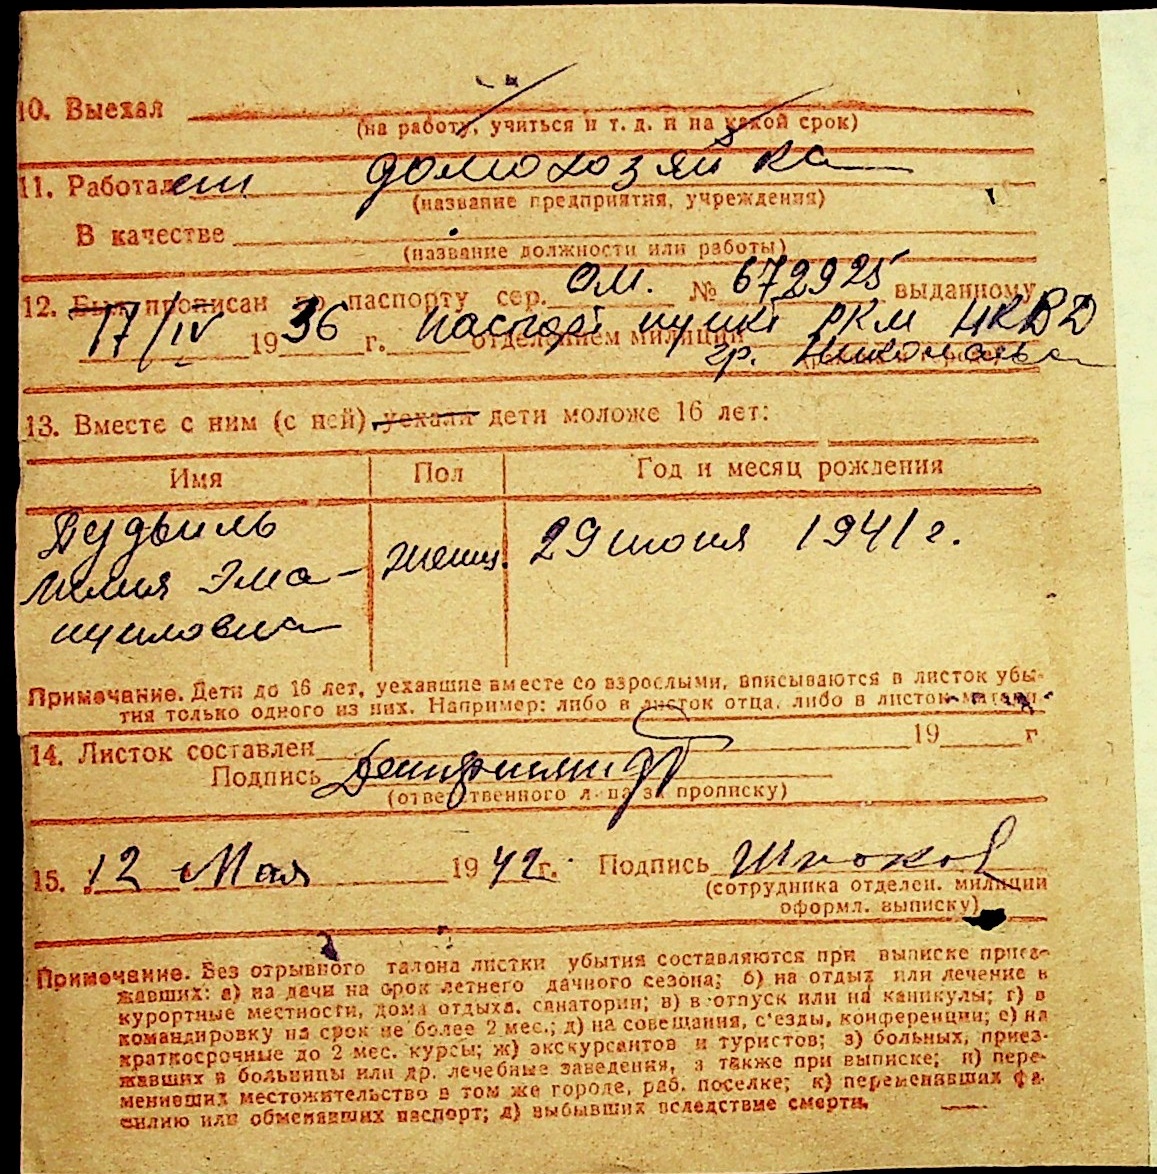 10. Выехал
(на работу, учиться и т. д. и на какой срок)
11. Работал домохозяйка
(название предприятия, учреждения)
В качестве
(название должности или работы)
12. Был прописан по паспорту сер. ОМ. № 672925 выданному
17/IV 1936 г. паспорт пункт РКМ НКВД
отделением милиции гр.
13. Вместе с ним (с ней) уехали дети моложе 16 лет:
Имя Пол Год и месяц рождения
29 июня 1941 г.
Лилия Эма- женщ.
нуиловна
Примечание. Дети до 16 лет, уехавшие вместе со взрослыми, вписываются в листок убы-
тия только одного из них. Например: либо в листок отца, либо в листок матери
14. Листок составлен 19 г
Подпись
(ответственного лица за прописку)
15. 12 Мая 1942 г. Подпись
(сотрудника отделен. милиции
оформл. выписку)
Примечание. Без отрывного талона листки убытия составляются при выписке приез-
жавших: а) на дачи на срок летнего дачного сезона; б) на отдых или лечение в
курортные местности, дома отдыха, санатории; в) в отпуск или на каникулы; г) в
командировку на срок не более 2 мес.; д) на совещания, с'езды, конференции; е) на
краткосрочные до 2 мес. курсы; ж) экскурсантов и туристов; з) больных, приез-
жавших в больницы или др. лечебные заведения, а также при выписке; и) пере-
менивших местожительство в том же городе, раб. поселке; к) переменивших фа-
милию или обменявших паспорт; л) выбывших вследствие смерти.